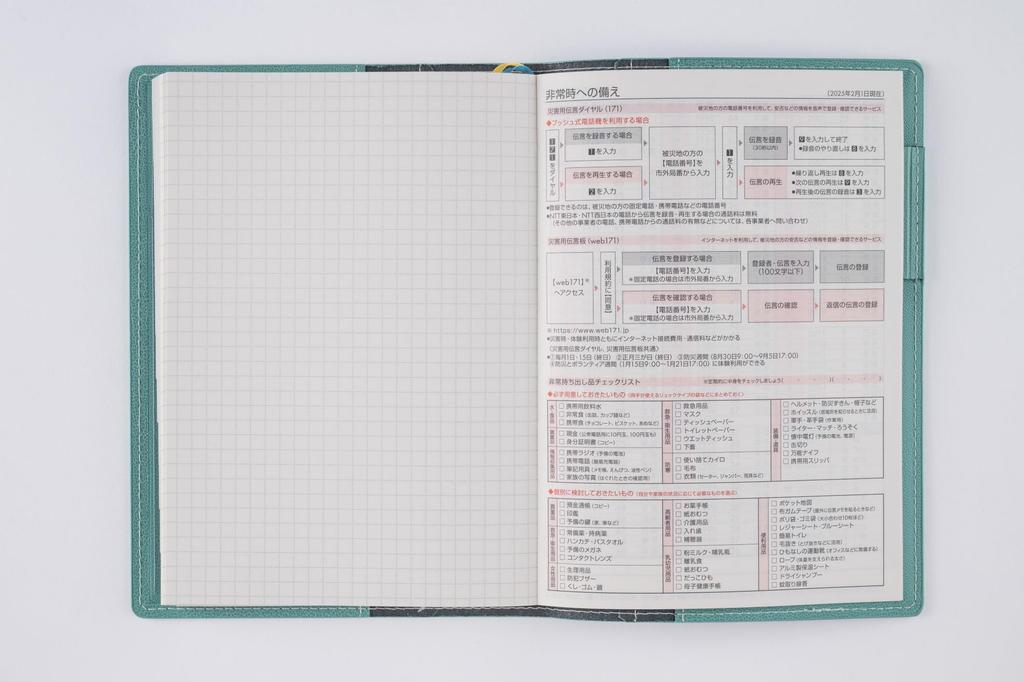 非常時への備え
(2025年2月1日現在)
災害用伝言ダイヤル (171)
被災地の方の電話番号を利用して、安否などの情報を音声で登録・確認できるサービス
◆プッシュ式電話機を利用する場合
171をダイヤル
伝言を録音する場合
1を入力
伝言を再生する場合
2を入力
被災地の方の
【電話番号】を
市外局番から入力
1を入力
伝言を録音
(30秒以内)
9を入力して終了
●録音のやり直しは8を入力
伝言の再生
●繰り返し再生は8を入力
●次の伝言の再生は9を入力
●再生後の伝言の録音は3を入力
●登録できるのは、被災地の方の固定電話・携帯電話などの電話番号
●NTT東日本・NTT西日本の電話から伝言を録音・再生する場合の通話料は無料
(その他の事業者の電話、携帯電話からの通話料の有無などについては、各事業者へ問い合わせ)
災害用伝言板 (web171)
インターネットを利用して、被災地の方の安否などの情報を登録・確認できるサービス
【web171】※
へアクセス
利用規約に【同意】
伝言を登録する場合
【電話番号】を入力
＊固定電話の場合は市外局番から入力
登録者・伝言を入力
(100文字以下)
伝言の登録
伝言を確認する場合
【電話番号】を入力
＊固定電話の場合は市外局番から入力
伝言の確認
返信の伝言の登録
※ https://www.web171.jp
●災害時・体験利用時ともにインターネット接続費用・通信料などがかかる
〈災害用伝言ダイヤル、災害用伝言板共通〉
●①毎月1日・15日 (終日) ②正月三が日 (終日) ③防災週間 (8月30日9:00〜9月5日17:00)
④防災とボランティア週間 (1月15日9:00〜1月21日17:00) に体験利用ができる
非常持ち出し品チェックリスト
※定期的に中身をチェックしましょう
◆必ず用意しておきたいもの (両手が使えるリュックタイプの袋などにまとめておく)
水・食品
□ 携帯用飲料水
□ 非常食 (缶詰、カップ麺など)
□ 携帯食 (チョコレート、ビスケット、あめなど)
貴重品
□ 現金 (公衆電話用に10円玉、100円玉も)
□ 身分証明書 (コピー)
情報収集用品
□ 携帯ラジオ (予備の電池)
□ 携帯電話 (簡易充電器)
□ 筆記用具 (メモ帳、えんぴつ、油性ペン)
□ 家族の写真 (はぐれたときの確認用)
救急・衛生用品
□ 救急用品
□ マスク
□ ティッシュペーパー
□ トイレットペーパー
□ ウエットティッシュ
□ 下着
防寒
□ 使い捨てカイロ
□ 毛布
□ 衣類 (セーター、ジャンパー、雨具など)
装備・道具
□ ヘルメット・防災ずきん・帽子など
□ ホイッスル (居場所を知らせるときに活用)
□ 軍手・革手袋 (作業用)
□ ライター・マッチ・ろうそく
□ 懐中電灯 (予備の電池、電源)
□ 缶切り
□ 万能ナイフ
□ 携帯用スリッパ
◆個別に検討しておきたいもの (自分や家族の状況に応じて必要なものを選ぶ)
貴重品
□ 預金通帳 (コピー)
□ 印鑑
□ 予備の鍵 (家、車など)
救急・衛生用品
□ 常備薬・持病薬
□ ハンカチ・バスタオル
□ 予備のメガネ
□ コンタクトレンズ
女性用品
□ 生理用品
□ 防犯ブザー
□ くし・ゴム・鏡
高齢者用品
□ お薬手帳
□ 紙おむつ
□ 介護用品
□ 入れ歯
□ 補聴器
乳幼児用品
□ 粉ミルク・哺乳瓶
□ 離乳食
□ 紙おむつ
□ だっこひも
□ 母子健康手帳
便利用品
□ ポケット地図
□ 布ガムテープ (屋外に伝言メモを貼るときなど)
□ ポリ袋・ゴミ袋 (大小合わせ10枚ほど)
□ レジャーシート・ブルーシート
□ 簡易トイレ
□ 毛抜き (とげ抜きなどに活用)
□ ひもなしの運動靴 (オフィスなどに常備する)
□ ロープ (体重を支えられる太さ)
□ アルミ製保温シート
□ ドライシャンプー
□ 蚊取り線香